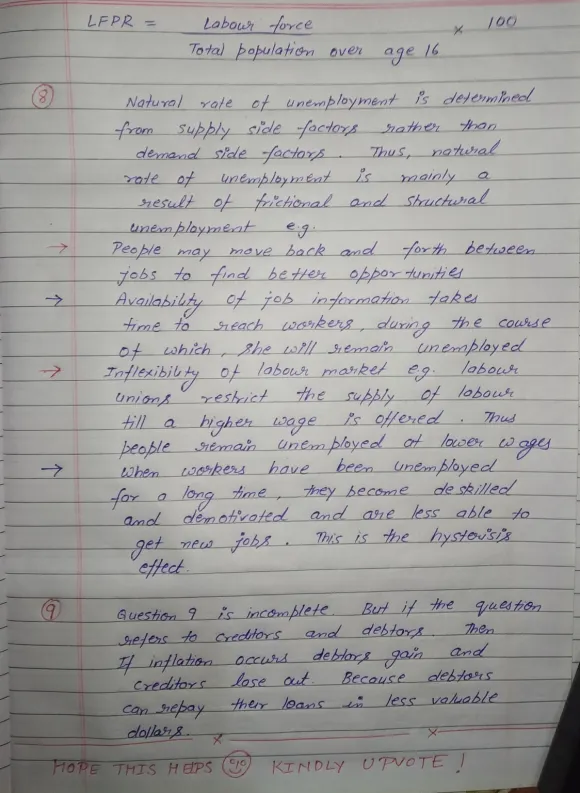 LFPR = Labour force × 100
Total population over age 16
8
Natural rate of unemployment is determined
from supply side factors rather than
demand side factors. Thus, natural
rate of unemployment is mainly a
result of frictional and structural
unemployment e.g.
→ People may move back and forth between
jobs to find better opportunities
→ Availability of job information takes
time to reach workers, during the course
of which, she will remain unemployed
→ Inflexibility of labour market e.g. labour
unions restrict the supply of labour
till a higher wage is offered. Thus
people remain unemployed at lower wages
→ When workers have been unemployed
for a long time, they become deskilled
and demotivated and are less able to
get new jobs. This is the hysterisis
effect.
9
Question 9 is incomplete. But if the question
refers to creditors and debtors. Then
If inflation occurs debtors gain and
creditors lose out. Because debtors
can repay their loans in less valuable
dollars.
× ×
HOPE THIS HELPS KINDLY UPVOTE !